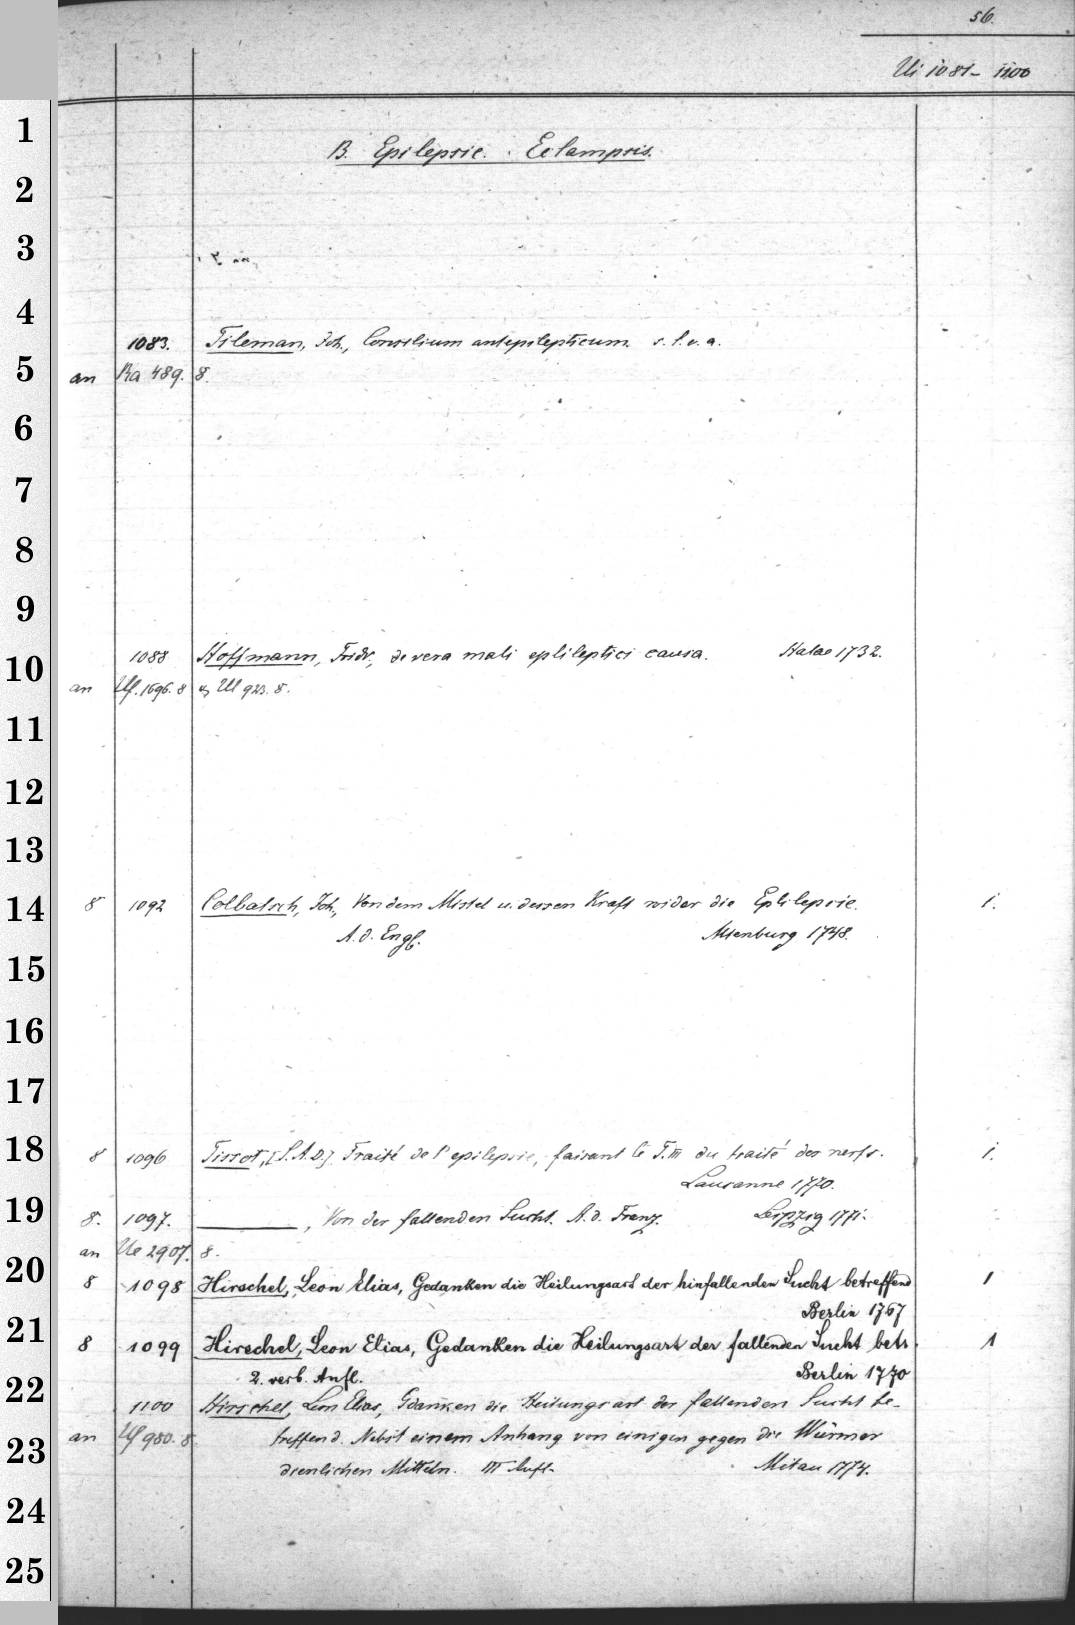 56.
Ui 1081-1100
B. Epilepsie. Eclampsis.
1
2
3
4
1083. Tileman, Joh., Consilium antepilepticum. s. l. e. a.
5
an Ba 489. 8.
6
7
8
9
1088 Hoffmann, Fridr., de vera mali epilileptici causa. Halae 1732.
10
an Uf. 1696. 8 Ul 923. 8.
11
12
13
14
8 1092 Colbatsch, Joh., Von dem Mistel u. dessen Kraft wider die Eplilepsie. 1.
A. d. Engl. Altenburg 1748.
15
16
17
18
8 1096 Tissot, [S.A.D.] Traité de l'epilepsie, faisant le T. III du traité des nerfs. 1.
Lausanne 1770.
19
8. 1097. ———, Von der fallenden Sucht. A. d. Franz. Leipzig 1771.
an Ue 2907. 8.
20
8 1098 Hirschel, Leon Elias, Gedanken die Heilungsart der hinfallenden Sucht betreffend 1
Berlin 1767
21
8 1099 Hirschel, Leon Elias, Gedanken die Heilungsart der fallenden Sucht betr. 1
2. verb. Aufl. Berlin 1770
22
1100 Hirschel, Leon Elias, Gdanken die Heilungsart der fallenden Sucht be-
an Uf 980. 8. treffend. Nebst einem Anhang von einigen gegen die Würmer
23
dienlichen Mitteln. III Aufl. Mitau 1774.
24
25